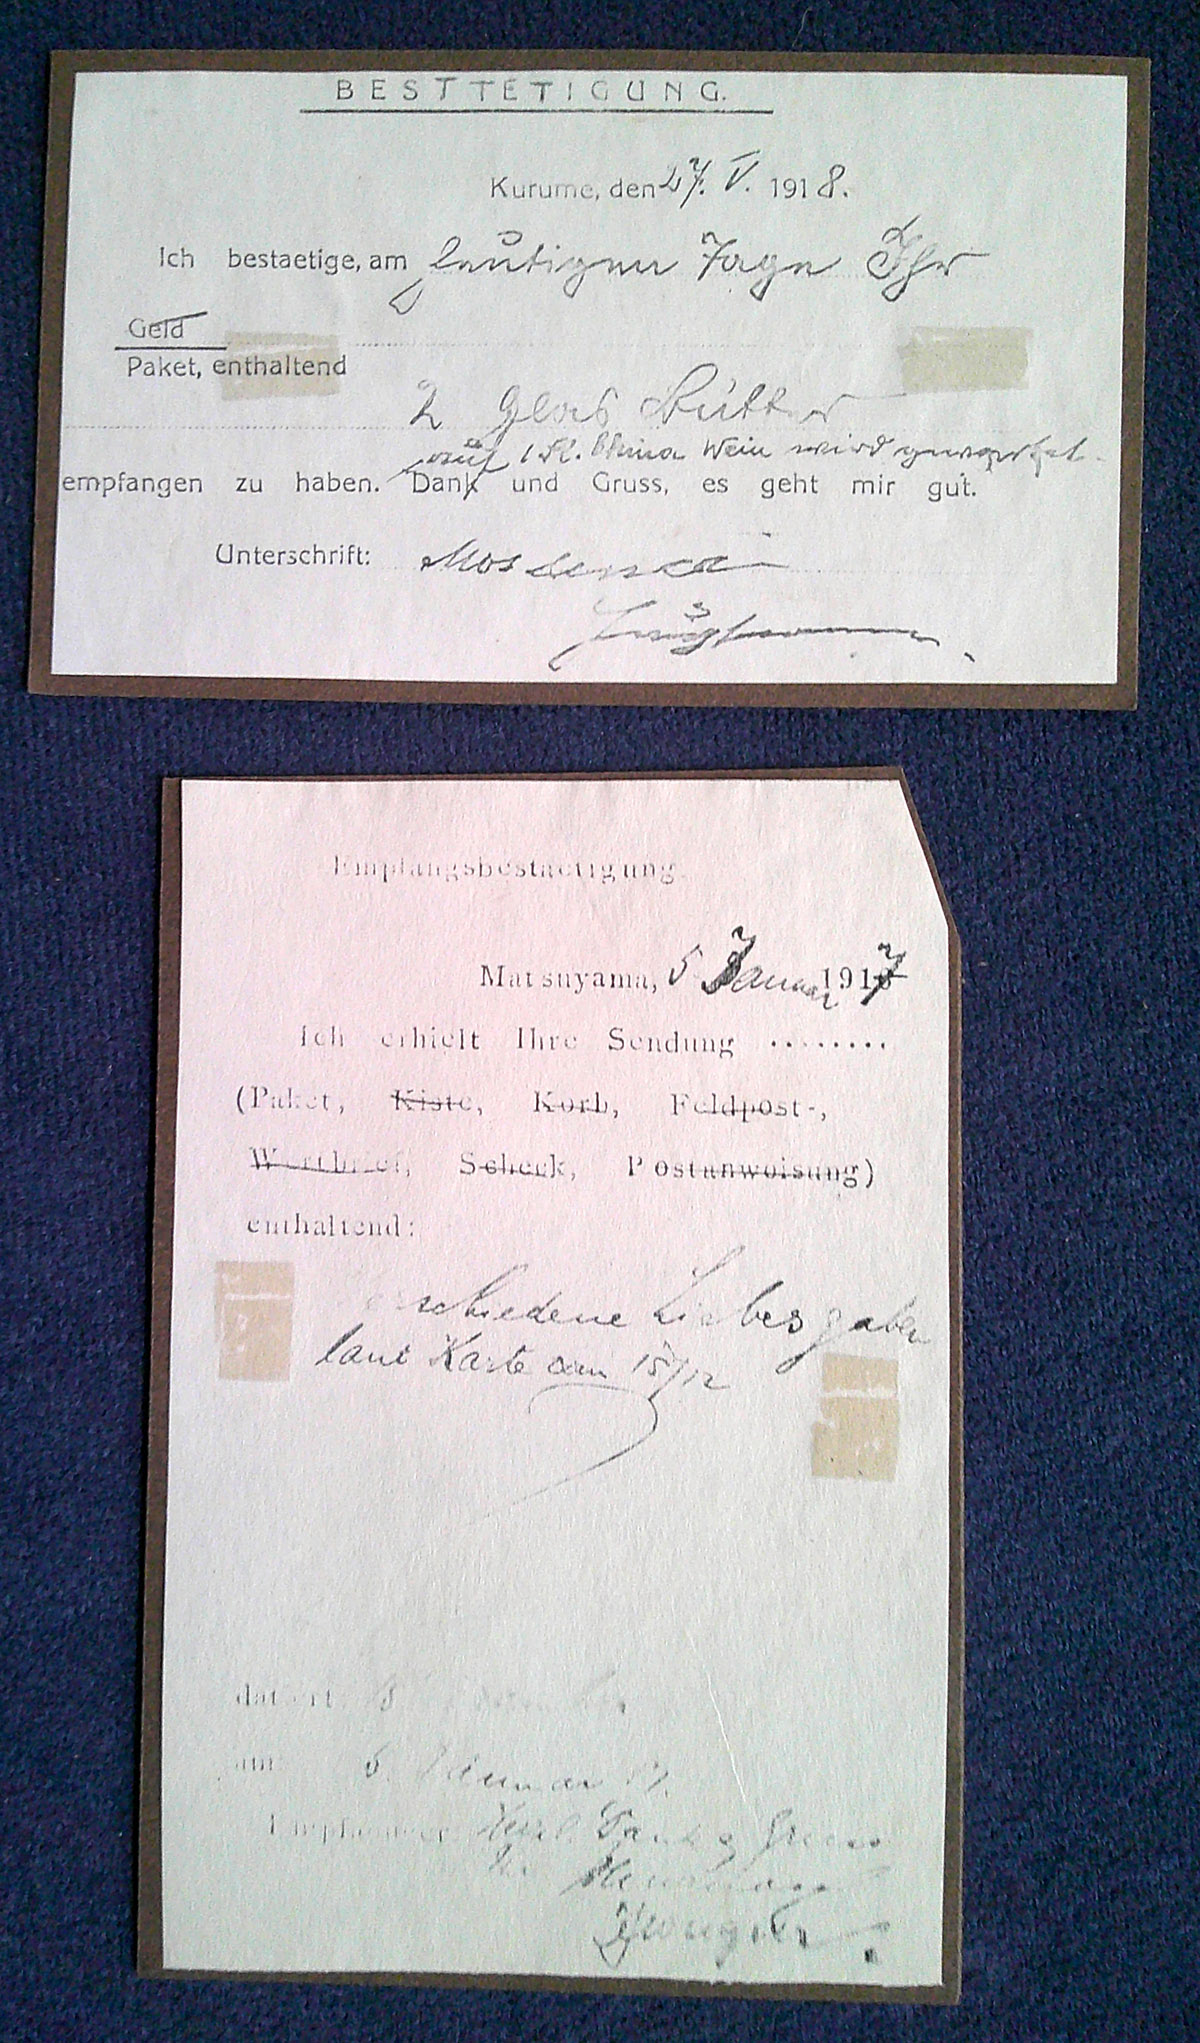 BESTTETIGUNG.
Kurume, den 27. V. 1918.
Ich bestaetige, am heutigen Tage Ihr
Geld
Paket, enthaltend
2 Glas Bütter
auf 1 Fl. China Wein wird gewartet.
empfangen zu haben. Dank und Gruss, es geht mir gut.
Unterschrift:
Empfangsbestaetigung.
Matsuyama, 5 Januar 1917
Ich erhielt Ihre Sendung ········
(Paket, Kiste, Korb, Feldpost-,
Wertbrief, Scheck, Postanweisung)
enthaltend:
verschiedene Liebesgaben
laut Karte vom 15/12
datiert
am: 5. Januar 17.
Empfaenger: Herzl. Dank & Gruss